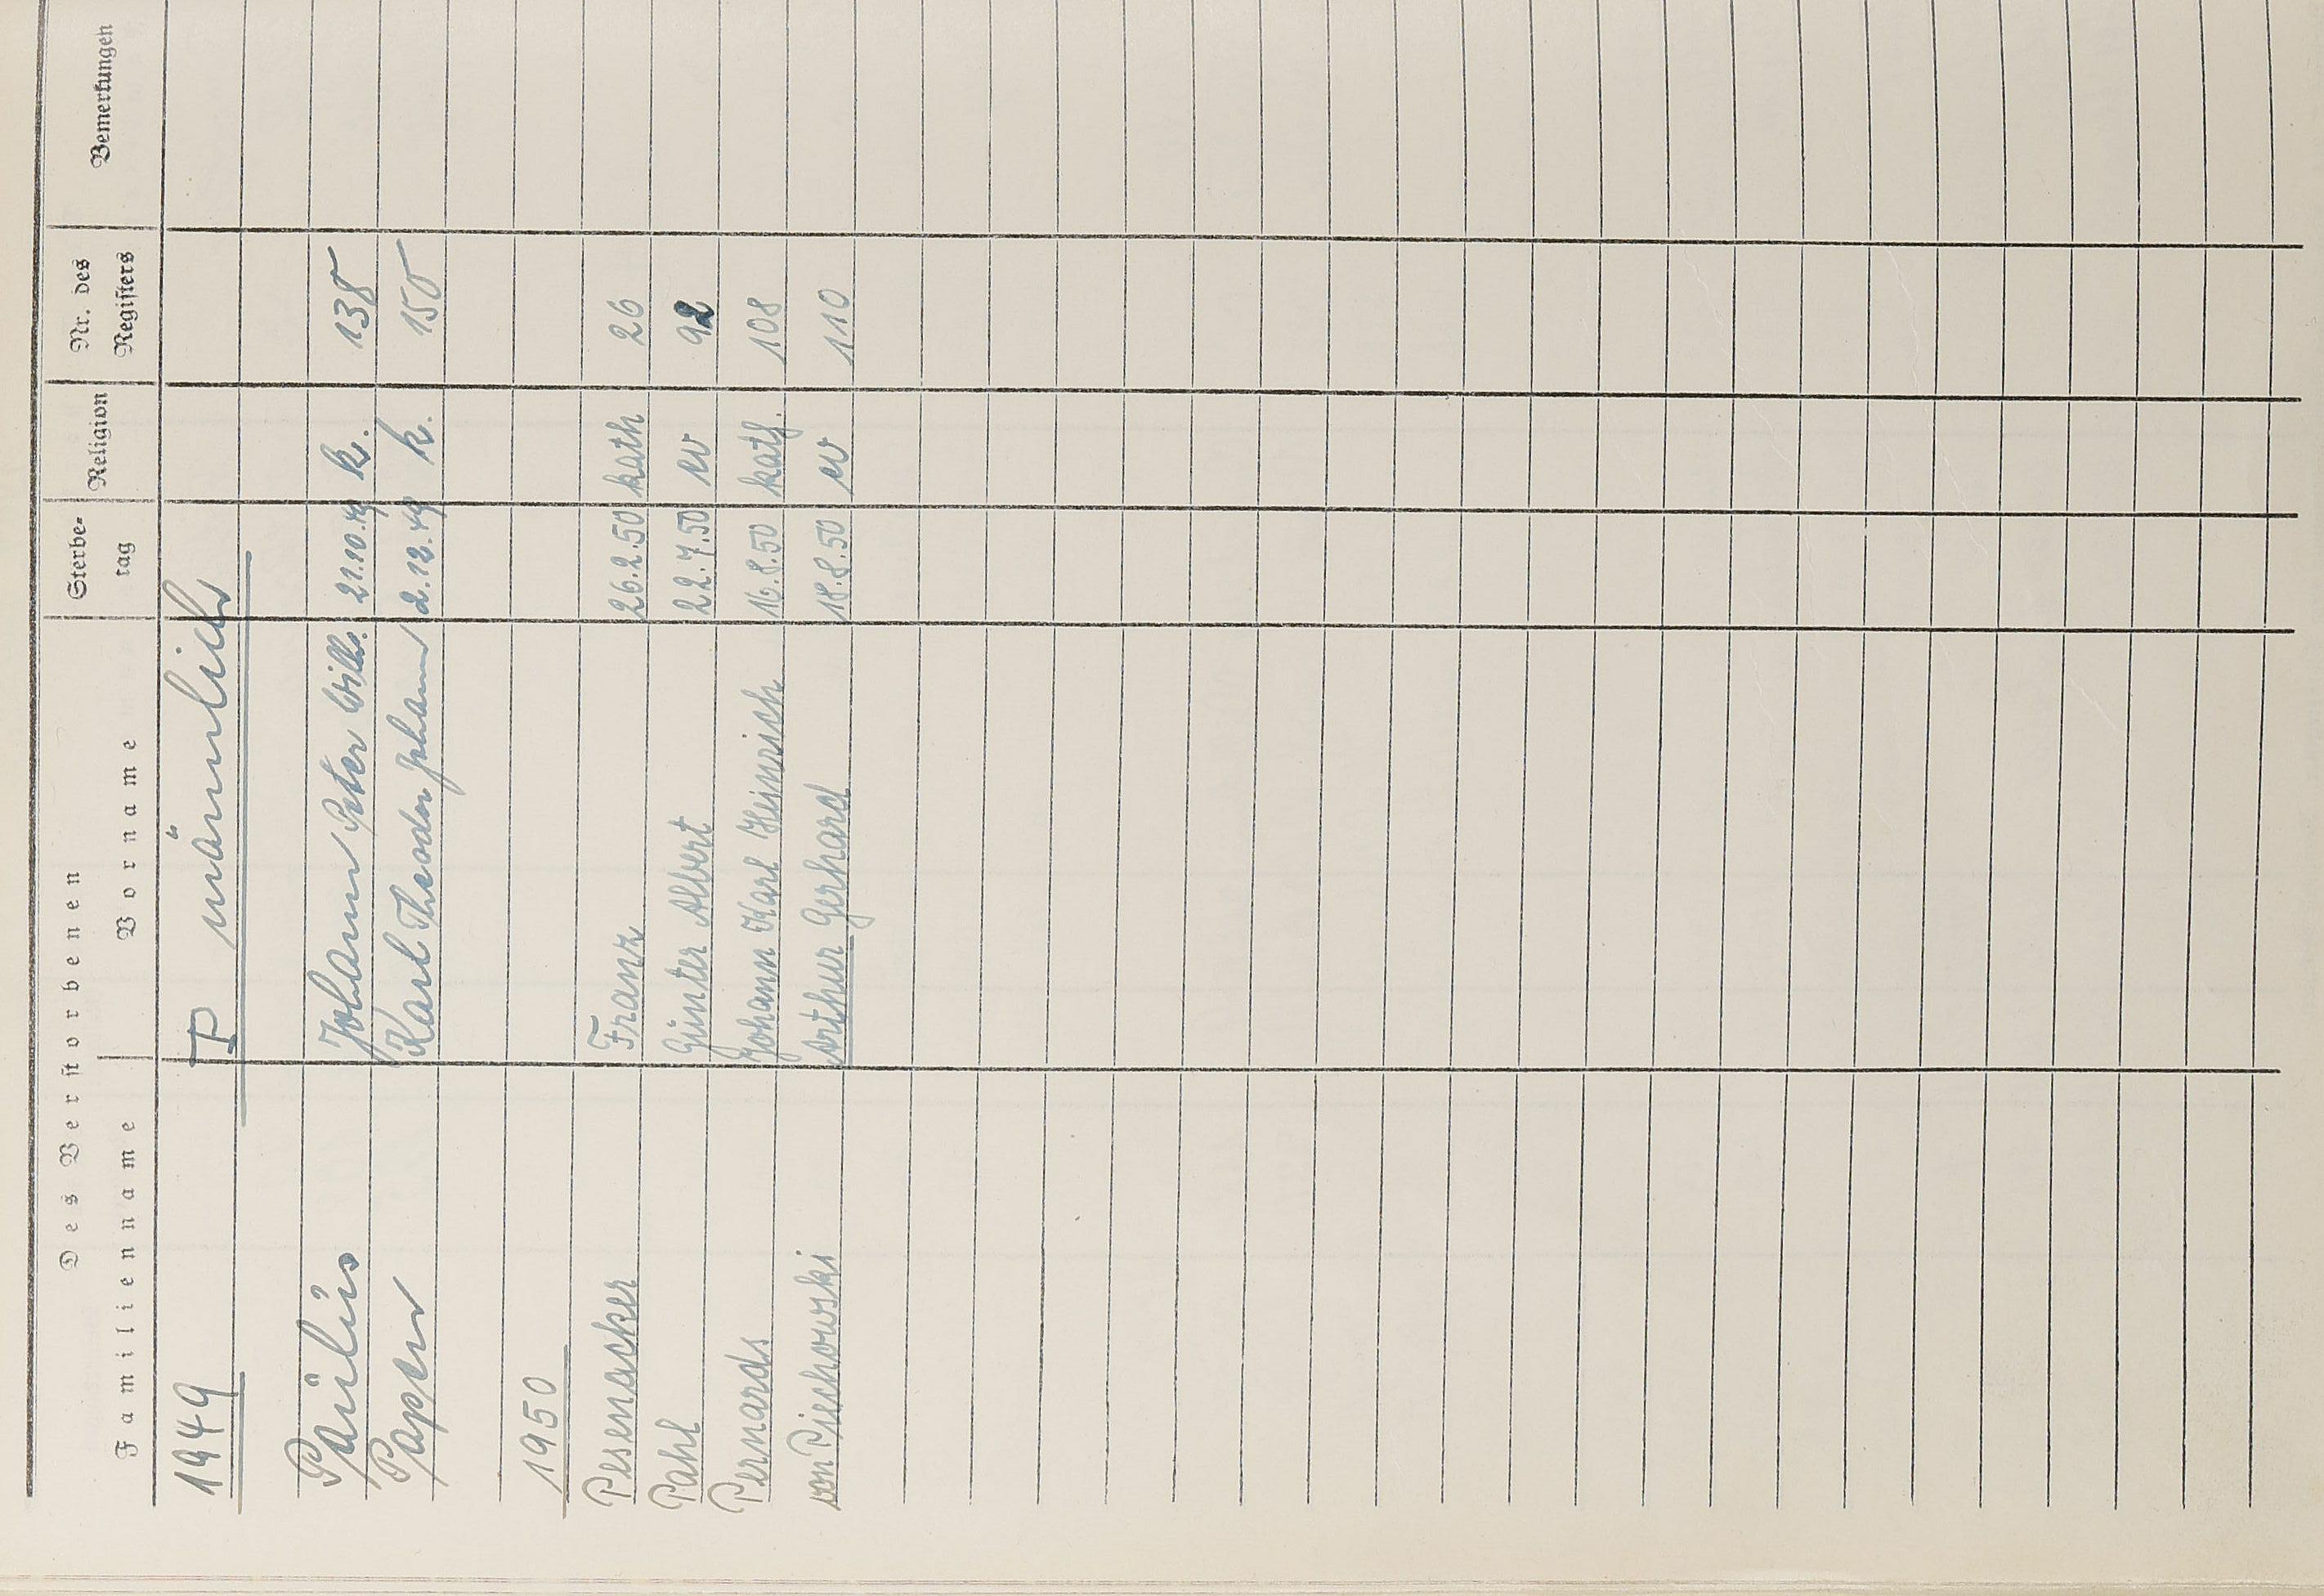 Des Verstorbenen
Familienname Vorname Sterbe-tag Religion Nr. des Registers Bemerkungen
1949 P männlich
Paulus Johann Peter Wilh. 21.10.49 k. 138
Papen Karl Theodor Johann 2.12.49 k. 150
1950
Pesenacker Franz 26.2.50 kath 26
Pahl Günter Albert 22.7.50 ev 92
Pernards Johann Karl Heinrich 16.8.50 kath. 108
von Piechowski Arthur Gerhard 18.8.50 ev 110